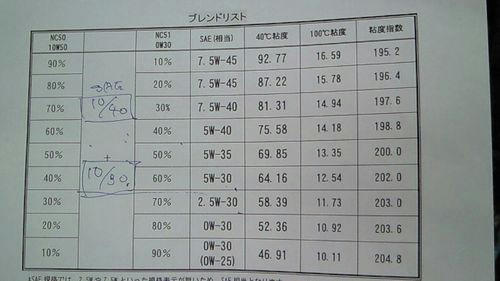 ブレンドリスト
NC50 10W50 NC51 0W30 SAE(相当) 40℃粘度 100℃粘度 粘度指数
90% 10% 7.5W-45 92.77 16.59 195.2
80% 20% 7.5W-45 87.22 15.78 196.4
70% 10/40 30% 7.5W-40 81.31 14.94 197.6
60% 40% 5W-40 75.58 14.18 198.8
50% 50% 5W-35 69.85 13.35 200.0
40% 10/30 60% 5W-30 64.16 12.54 202.0
30% 70% 2.5W-30 58.39 11.73 203.0
20% 80% 0W-30 52.36 10.92 203.6
10% 90% 0W-30 (0W-25) 46.91 10.11 204.8